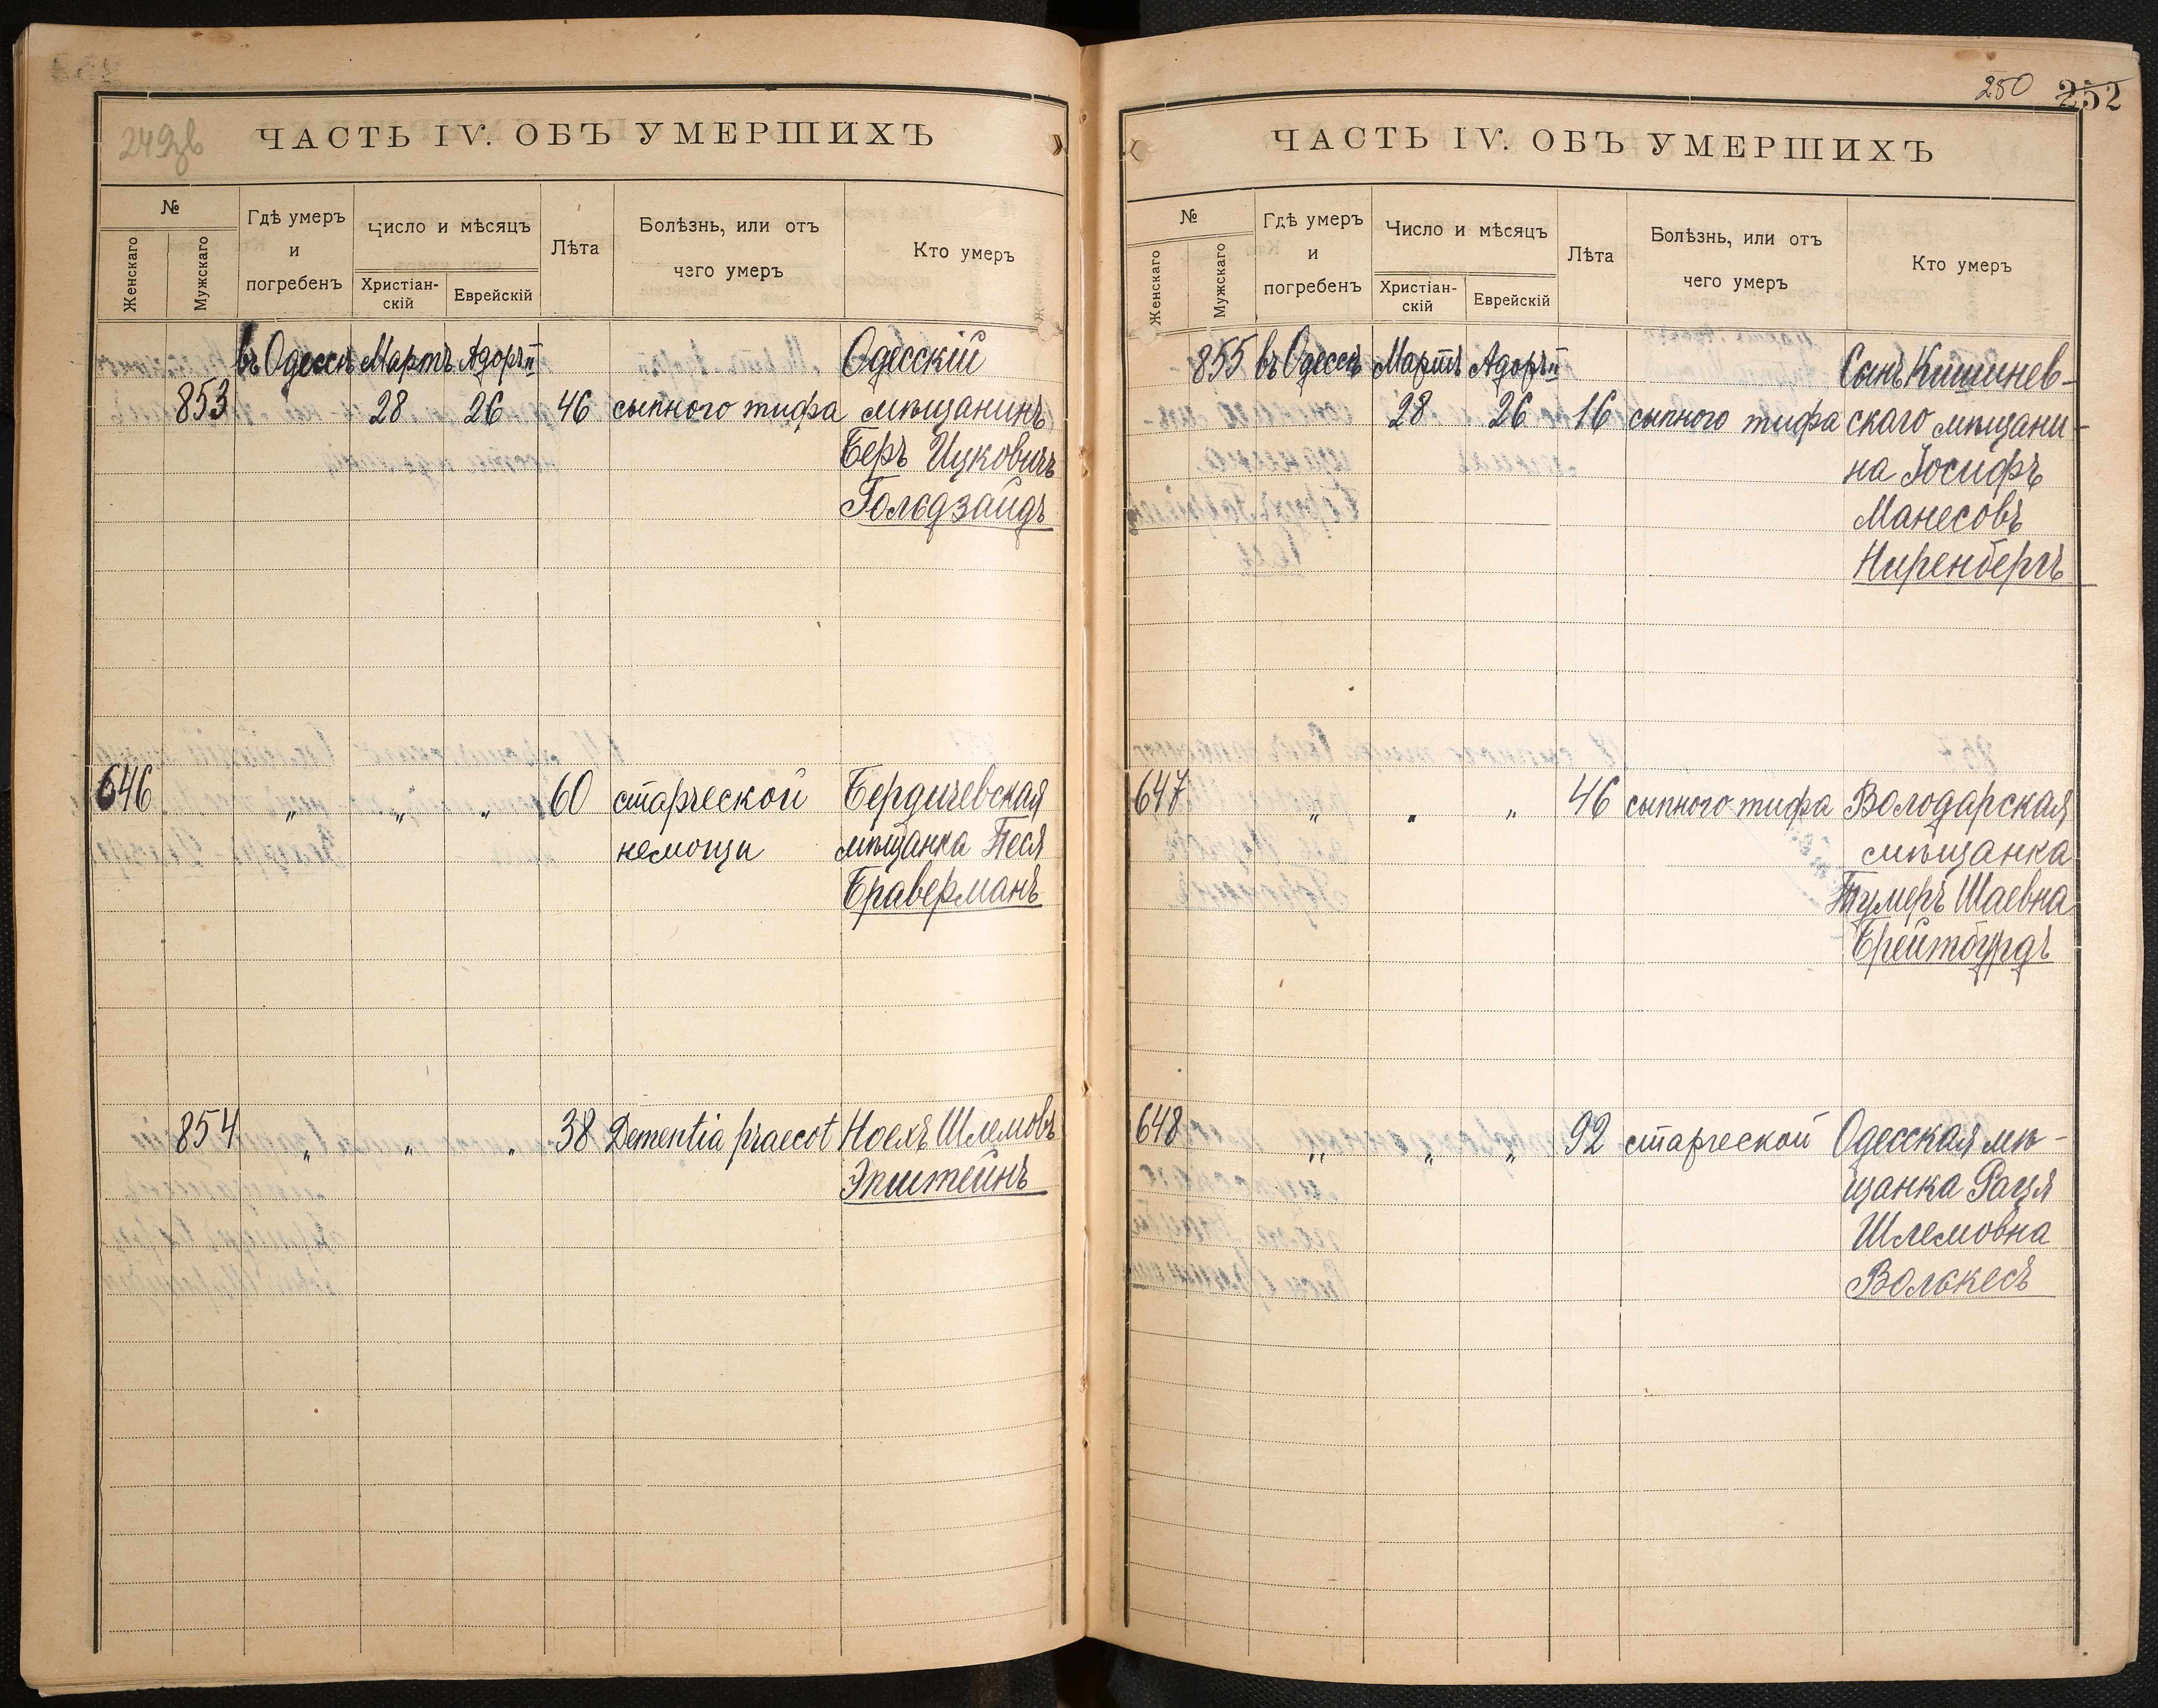 249зв
ЧАСТЬ IV. ОБЪ УМЕРШИХЪ
№
Женскаго
Мужскаго
Гдѣ умеръ
и
погребенъ
Число и мѣсяцъ
Христіан-
скій
Еврейскій
Лѣта
Болѣзнь, или отъ
чего умеръ
Кто умеръ
въ Одессѣ Мартъ Адоръ II Одесскій
853 28 26 46 сыпного тифа мѣщанинъ
Беръ Ицковичъ
Гольдзайдъ
646 „ „ „ 60 старческой Бердичевская
немощи мѣщанка Песя
Браверманъ
854 „ „ „ 38 Dementia praecot Ноехъ Шлемовъ
Эпштейнъ
250 252
ЧАСТЬ IV. ОБЪ УМЕРШИХЪ
№
Женскаго
Мужскаго
Гдѣ умеръ
и
погребенъ
Число и мѣсяцъ
Христіан-
скій
Еврейскій
Лѣта
Болѣзнь, или отъ
чего умеръ
Кто умеръ
855 въ Одессѣ Мартъ Адоръ II Сынъ Кишинев-
28 26 16 сыпного тифа скаго мѣщани-
на Іосифъ
Манесовъ
Ниренбергъ
647 „ „ „ 46 сыпного тифа Володарская
мѣщанка
Тумеръ Шаевна
Брейтбурдъ
648 „ „ „ 92 старческой Одесская мѣ-
щанка Рация
Шлемовна
Волькесъ